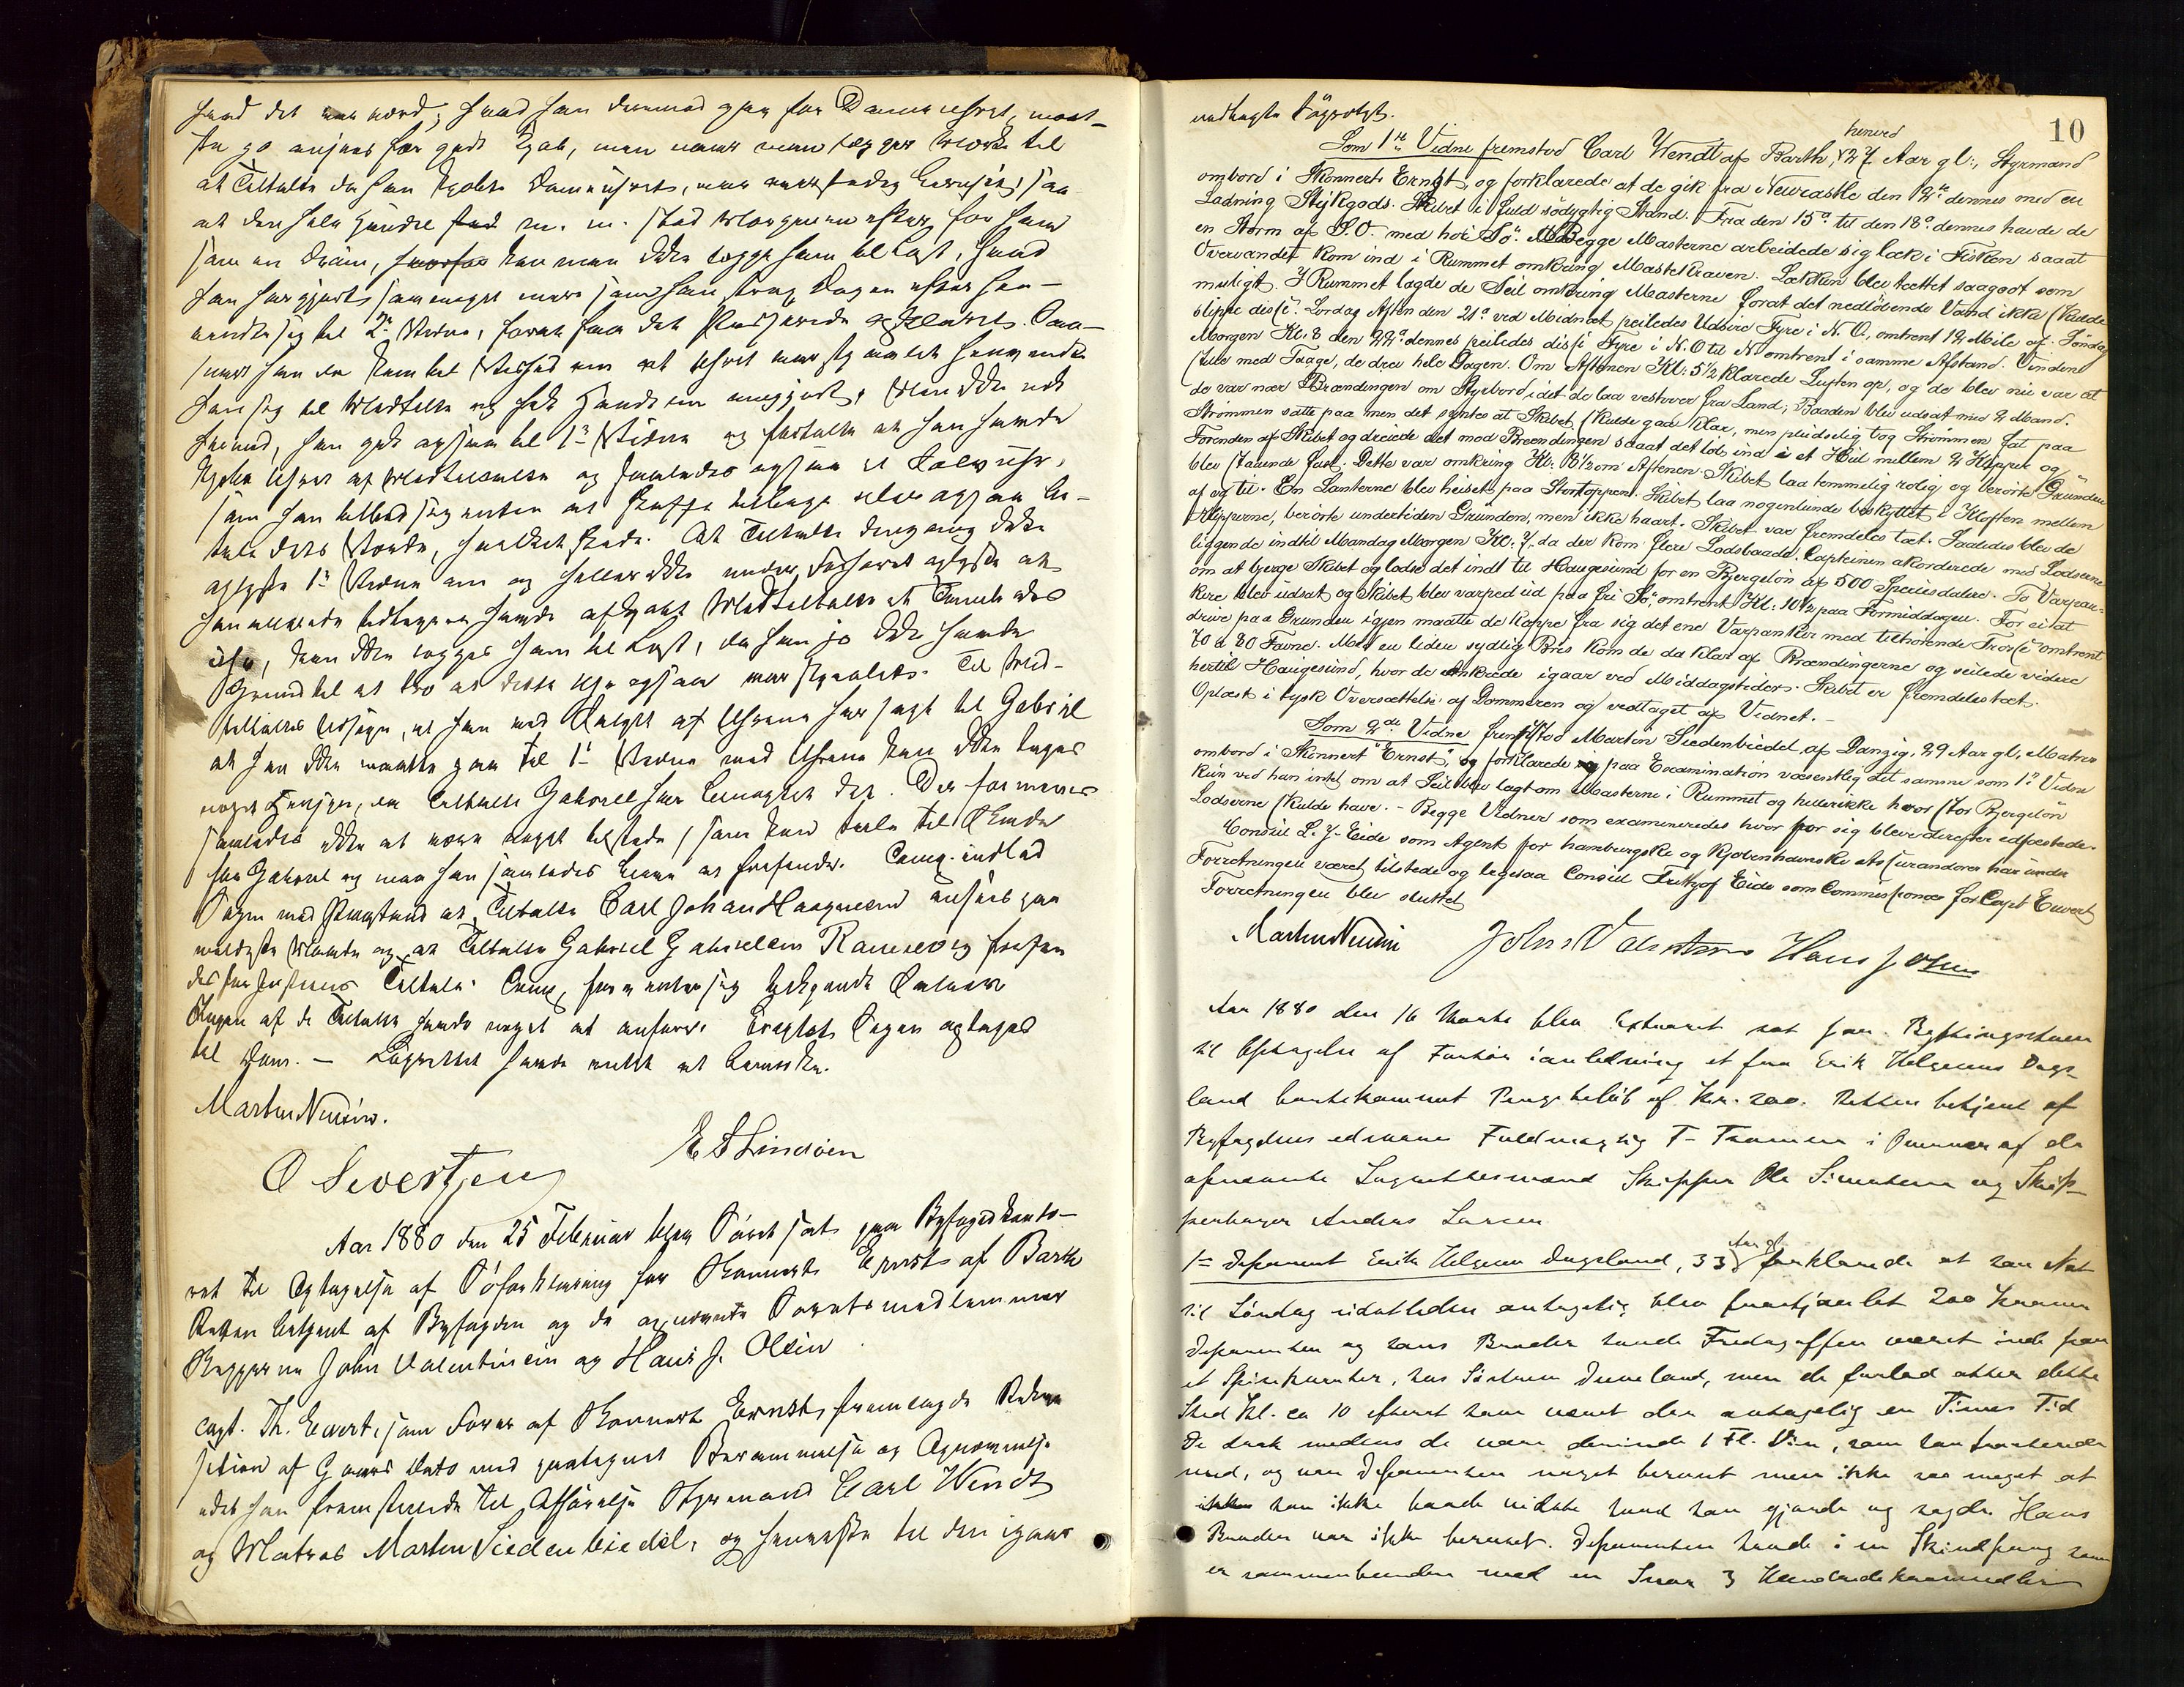 hvad det var værd; hvad han derimod gav for Dameuhret, maat-
te jo ansees for godt Kjøb, men naar man lægger Mærke til
at Tiltalte da han kjøbte Dameuhret, var beruset, saa
at den hele Handel stod for ham
som en Drøm, kan man ikke lægge ham til Last, hvad
han har gjort, saameget mere som han strax Dagen efter hen-
vendte sig til 2t Vidne, for at faa det
snart han da kom til Vished om at Uhret var stjaalet henvendte
han sig til Medtiltalte og fik Handelen omgjort, Men ikke nok
hermed, han gik ogsaa til 1t Vidne og fortalte at han havde
kjøbt Uhret af Medtiltalte og ogsaa et Sølvuhr,
som han tilbød sig enten at skaffe tilbage eller ogsaa be-
tale dets Værdi, hvilket skede. At Tiltalte dengang ikke
oplyste 1t Vidne om og heller ikke under Forhøret oplyste at
han allerede tidligere havde afkjøbt Medtiltalte et
Uhr, kan ikke lægges ham til Last, da han jo ikke havde
Grund til at tro at dette Uhr ogsaa var stjaalet. Til Med-
tiltaltes Udsagn, at han ved Salget af Uhrene har sagt til Gabriel
at han ikke maatte gaa til 1t Vidne med Uhrene kan ikke tages
noget Hensyn, da Tiltalte Gabriel har benægtet det. Der formenes
saaledes ikke at være noget tilstede, som kan tale til Skade
for Gabriel og maa han saaledes blive at frifinde. Comp. indlod
Sagen med Paastand at Tiltalte Carl Johan Haagensen ansees paa
mildeste Maade og at Tiltalte Gabriel Gabrielsen Ramsvig frifin-
des for Justitiens Tiltale.
Ingen af de Tiltalte havde noget at anføre. Sagen optages
til Dom. — Lagrettet havde intet at bemærke.
Martin Nissen.
E S Lindøen
O Sivertsen
Aar 1880 den 25 Februar blev Søret sat paa Byfogedkonto-
ret til Optagelse af Søforklaring for Skonnert Ernst af Barth
Retten betjent af Byfogden og de opnævnte Søretsmedlemmer
Skipperne John Valentinsen og Hans J. Olsen
Capt. Th. Ewert, som Fører af Skonnert Ernst, fremlagde Rekvi-
sition af Gaars Dato med paategnet Berammelse og Opnævnelse
idet han fremstillede til Afhørelse Styrmand Carl Wendt
og Matros Martin Siedenbiedel, og henviste til den igaar
10
indbragte Søprotest.
Som 1te Vidne fremstod Carl Wendt af Barth, henved 27 Aar gl:, Styrmand
ombord i Skonnert Ernst, og forklarede at de gik fra Newcastle den 12te dennes med en
Ladning Stykgods. Skibet i fuld södygtig Stand. Fra den 15de til den 18de dennes havde de
en Storm af S.O. med höi Sö. Begge Masterne arbeidede sig læk i Fisken saaat
Overvandet kom ind i Rummet omkring Mastekraven. Lækken blev tættet saagodt som
muligt. I Rummet lagde de Seil omkring Masterne forat det nedlöbende Vand ikke skulde
slippe dissi. Lördag Aften den 21de ved Midnat peiledes Udsire Fyre i N. O., omtrent 12 Mile af. Söndag
Morgen Kl: 8 den 22de dennes peiledes dissi Fyre i N. O til N omtrent i samme Afstand. Vinden
stille med Taage, de drev hele Dagen. Om Aftenen Kl: 5½ klarede Luften op, og de blev nu var at
de var nær Brændingen om Styrbord idet de laa vestover fra Land; Baaden blev udsat med 2 Mand.
Strömmen satte paa men det syntes at Skibet skulde gaa klar, men pludselig tog Strömmen fat paa
Forenden af Skibet og dreiede det mod Brændingen saaat det löb ind i et Hul mellem 2 Klipper og
blev staaende fast. Dette var omkring Kl: 8½ om Aftenen. Skibet laa temmelig rolig og berörte Grunden
af og til. En Lanterne blev heiset paa Stortoppen. Skibet laa nogenlunde beskyttet i Kloften mellem
Klipperne, berörte undertiden Grunden, men ikke haart. Skibet var fremdeles tæt. Saaledes blev de
liggende indtil Mandag Morgen Kl: 7, da der kom flere Lodsbaade. Capteinen akorderede med Lodserne
om at bjerge Skibet og lodse det indt til Haugesund for en Bjergelön af 500 Speciesdalere. To Varpan-
kere blev udsat og Skibet blev varped ud paa fri Sö, omtrent Kl: 10½ paa Formiddagen. For ei at
drive paa Grunden igjen maatte de kappe fra sig det ene Varpanker med tilhörende Trosse omtrent
70 a 80 Favne. Med en liden sydlig Bris kom de da klar af Brændingerne og seilede videre
hertil Haugesund, hvor de ankrede igaar ved Middagstider. Skibet er fremdeles tæt.
Oplæst i tysk Oversættelse af Dommeren og vedtaget af Vidnet. –
Som 2det Vidne fremstod Martin Siedenbiedel, af Danzig, 29 Aar gl., Matros
ombord i Skonnert "Ernst", og forklarede paa Examination væsentlig det samme som 1te Vidne
kun ved han intet om at Seil blev lagt om Masterne i Rummet og hellerikke hvor stor Bjergelön
Lodserne skulde have. – Begge Vidner som examineredes hver for sig bleve derefter edfæstede.
Consul L. J. Eide som Agent for hamburgske og Kjøbenhavnske Assurandører har under
Forretningen været tilstede og ligesaa Consul Frithjof Eide som Commissionær for Capt Ewert
Forretningen blev sluttet
Martin Nissen John Valentinsen Hans J Olsen
Aar 1880 den 16 Marts blev Extraret sat paa Bythingstuen
til Optagelse af Forhör i anledning et fra Erik Helgesens Dags-
land bortkommet Pengebelöb af Kr. 200. Retten betjent af
Byfogdens edsvorne Fuldmægtig T. i Overvær af de
opnævnte Lagrettesmænd Skipper Ole Simonsen og Skib-
perborger Anders Larsen
1te Deponent Erik Helgesen Dagsland, 33 Aar gl. forklarede at han Nat
til Söndag sidstleden antagelig blev frastjaalet 200 Kroner
Deponenten og hans Broder havde Fredag aften været inde paa
et Spisekvarter, hos Dueland, men de forlod atter dette
Sted Kl. ca 10 efterat have været der antagelig en Times Tid
De drak medens de vare derinde 1 Fl. Vin, som han trakterede
med, og var Deponenten noget beruset men ikke saa meget at
han ikke baade vidste hvad han gjorde og sagde. Hans
Broder var ikke beruset. Deponenten havde i en Skindpung som
er sammenbunden med en Snor 3 Hundredekronesedler